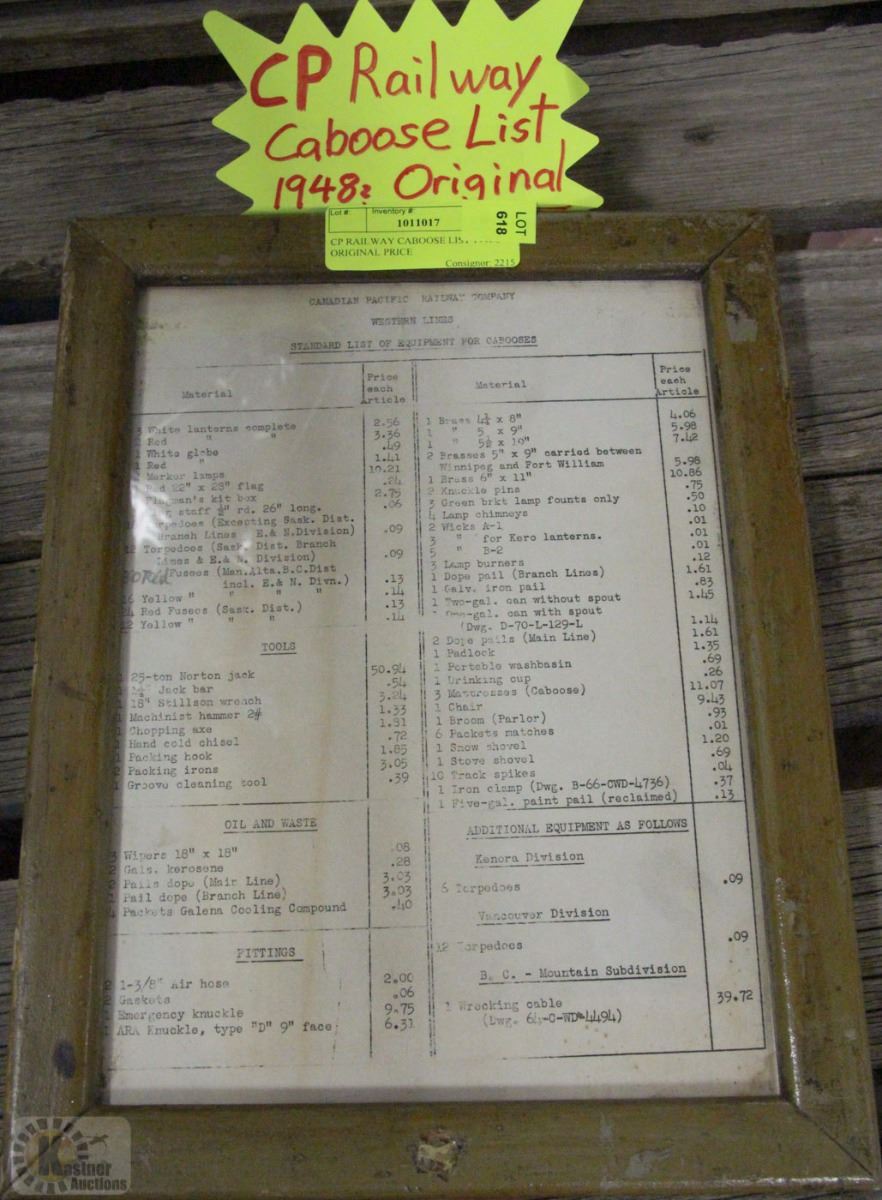 CP Railway
Caboose List
1948: Original
Lot #: Inventory #:
1011017
LOT
618
CP RAILWAY CABOOSE LIST
ORIGINAL PRICE
Consignor: 2215
CANADIAN PACIFIC RAILWAY COMPANY
WESTERN LINES
STANDARD LIST OF EQUIPMENT FOR CABOOSES
Material
Price
each
Article
3 White lanterns complete 2.56
Red " " 3.36
White globe .49
Red " 1.41
Marker lamps 10.21
Red 22" x 28" flag .24
Flagman's kit box 2.75
staff ½" rd. 26" long. .06
Torpedoes (Excepting Sask. Dist.
Branch Lines E.& N.Division) .09
12 Torpedoes (Sask. Dist. Branch
Lines & E.& N. Division) .09
(Fusees (Man.Alta.B.C.Dist
incl. E.& N. Divn.) .13
6 Yellow " " " " .14
24 Red Fusees (Sask. Dist.) .13
12 Yellow " " " .14
TOOLS
25-ton Norton jack 50.94
Jack bar .54
1 18" Stillson wrench 3.24
1 Machinist hammer 2# 1.33
1 Chopping axe 1.31
1 Hand cold chisel .72
1 Packing hook 1.85
2 Packing irons 3.05
1 Groove cleaning tool .39
OIL AND WASTE
3 Wipers 18" x 18" .08
2 Gals. kerosene .28
2 Pails dope (Main Line) 3.03
1 Pail dope (Branch Line) 3.03
4 Packets Galena Cooling Compound .40
FITTINGS
2 1-3/8" Air hose 2.00
2 Gaskets .06
1 Emergency knuckle 9.75
1 ARA Knuckle, type "D" 9" face 6.31
Material
Price
each
Article
1 Brass 4¼ x 8" 4.06
1 " 5 x 9" 5.98
1 " 5½ x 10" 7.42
2 Brasses 5" x 9" carried between
Winnipeg and Fort William 5.98
1 Brass 6" x 11" 10.86
2 Knuckle pins .75
3 Green brkt lamp founts only .50
4 Lamp chimneys .10
2 Wicks A-1 .01
3 " for Kero lanterns. .01
5 " B-2 .01
3 Lamp burners .12
1 Dope pail (Branch Lines) 1.61
1 Galv. iron pail .83
1 Two-gal. can without spout 1.45
can with spout
(Dwg. D-70-L-129-L 1.14
2 Dope pails (Main Line) 1.61
1 Padlock 1.35
1 Portable washbasin .69
1 Drinking cup .26
3 Mattresses (Caboose) 11.07
1 Chair 9.43
1 Broom (Parlor) .93
6 Packets matches .01
1 Snow shovel 1.20
1 Stove shovel .69
10 Track spikes .04
1 Iron clamp (Dwg. B-66-CWD-4736) .37
1 Five-gal. paint pail (reclaimed) .13
ADDITIONAL EQUIPMENT AS FOLLOWS
Kenora Division
6 Torpedoes .09
Vancouver Division
12 Torpedoes .09
B. C. - Mountain Subdivision
1 Wrecking cable 39.72
(Dwg. 64-C-WD-4494)
Kastner
Auctions